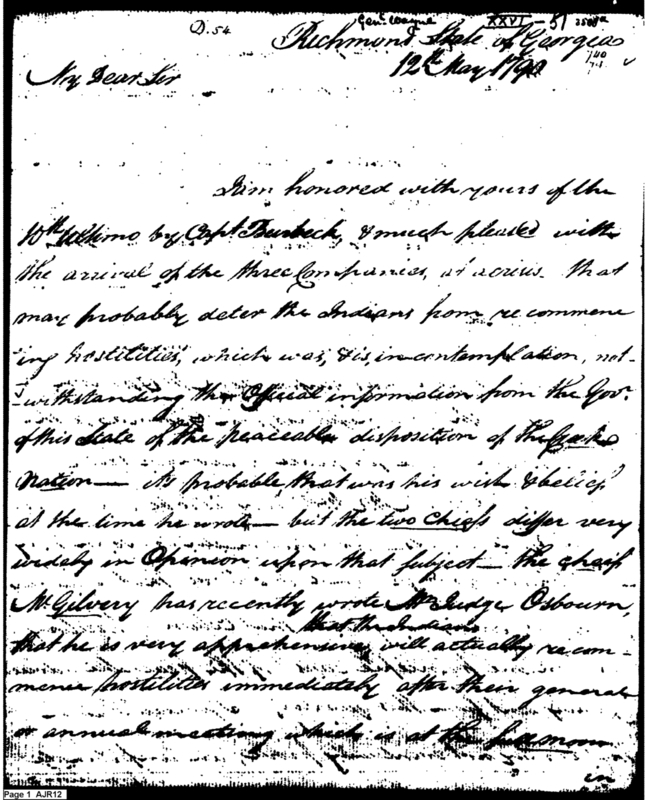 D. 54 Genl Wayne XXVI - 51
Richmond State of Georgia
12th May 1790
My Dear Sir
I am honored with yours of the
10th Ultimo by Capt Burbeck, & much pleased with
the arrival of the three Companies, as that
may probably deter the Indians from recommenc
ing hostilities, which was, & is, in contemplation, not-
-withstanding the Official information from the Govr.
of this State of the peaceable disposition of the Creek
Nation — its probable that was his wish & belief
at the time he wrote — but the two chiefs differ very
widely in Opinion upon that subject — the chief
McGilvery has recently wrote Mr. Judge Osbourn,
that the Indians
that he is very apprehensive, will actually recom-
mence hostilities immediately after their general
or annual meeting which is at the full moon
in
Page 1 AJR12